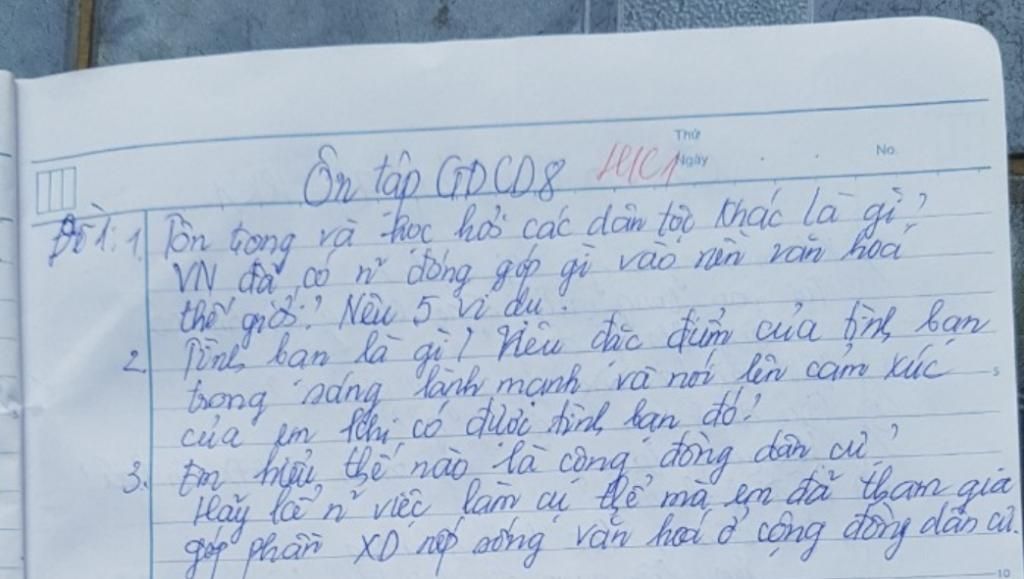 Thứ
Ngày . . No.
Ôn tập GDCD8 HKI
Đề 1: 1. Tôn trọng và học hỏi các dân tộc khác là gì?
VN đã có n~ đóng góp gì vào nền văn hoá
thế giới? Nêu 5 ví dụ.
2. Tình bạn là gì? Nêu đặc điểm của tình bạn
trong sáng lành mạnh và nói lên cảm xúc
của em khi có được tình bạn đó?
3. Em hiểu thế nào là cộng đồng dân cư?
Hãy kể n~ việc làm cụ thể mà em đã tham gia
góp phần XD nếp sống văn hoá ở cộng đồng dân cư.
5
10